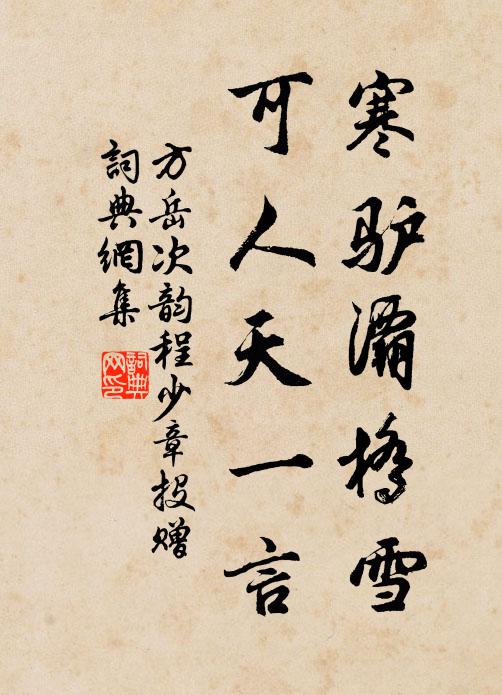 寒驴灞桥雪
可人天一言
方岳次韵程少章投赠
詞典網集
詞典网印